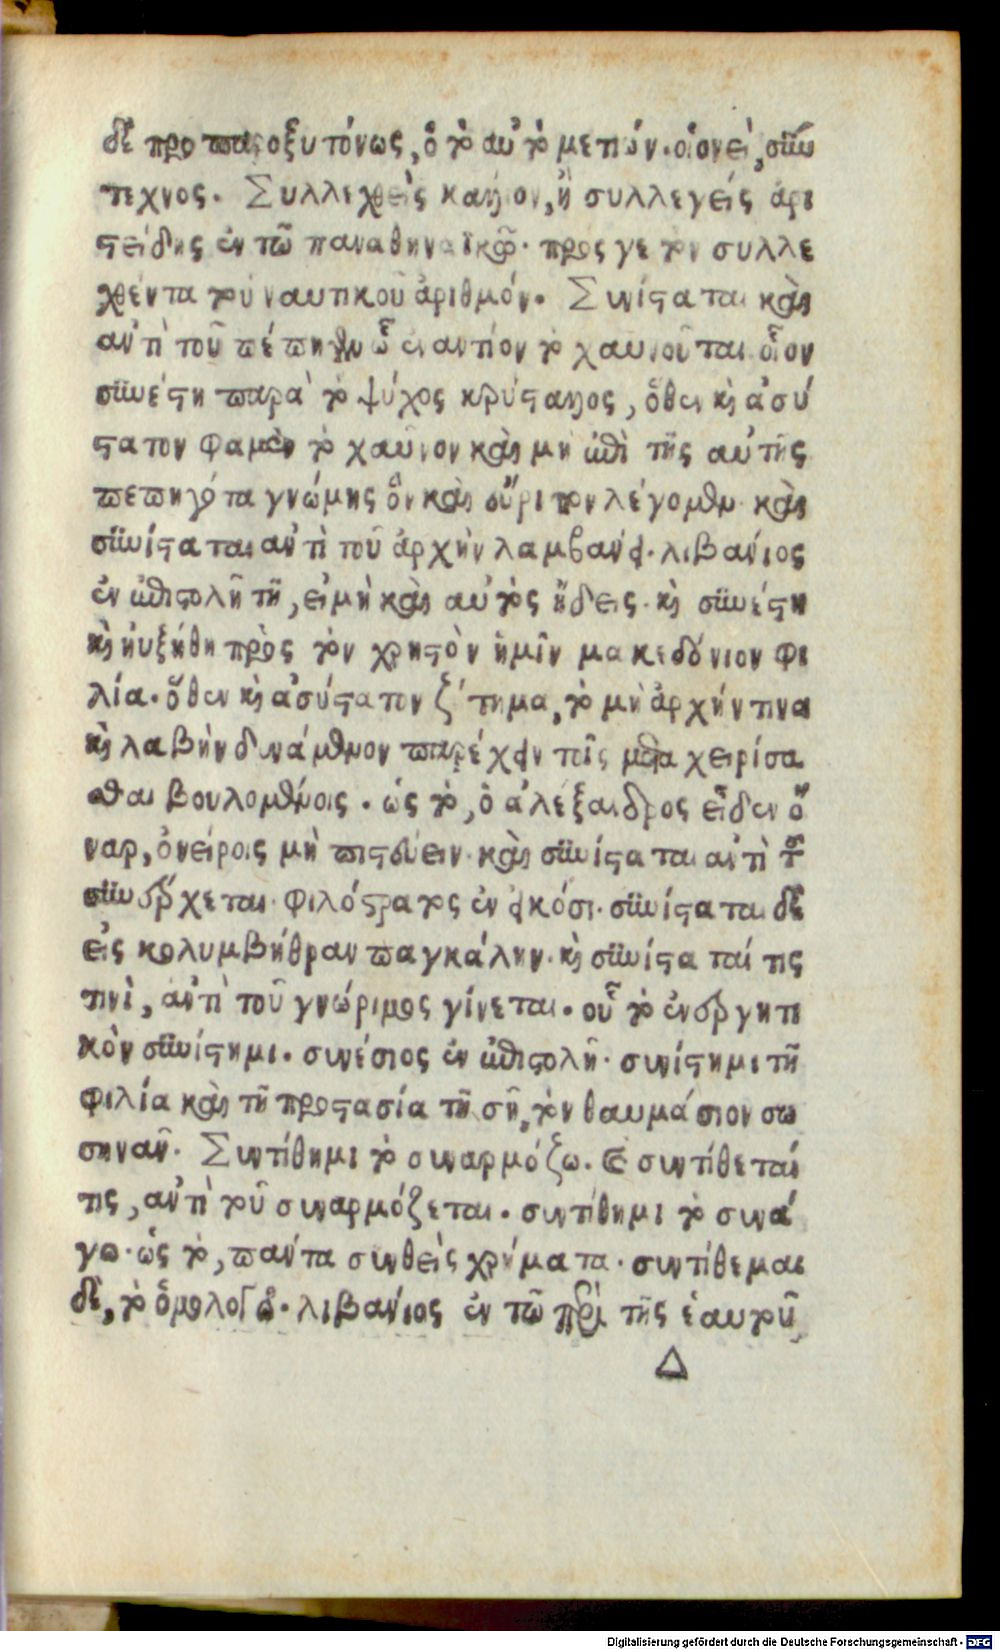 δὲ προπαροξυτόνως, ὁ τὸ αὐτὸ μετιών. οἱονεὶ, σύν
τεχνος. Συλλεχθεὶς κάλλιον, ἢ συλλεγείς ἀρι
στείδης ἐν τῶ παναθηναϊκῶ. πρός γε τὸν συλλε
χθέντα τοῦ ναυτικοῦ ἀριθμόν. Συνίσταται καὶ
ἀντὶ τοῦ πέπηγεν ὧ ἐναντίον τὸ χαυνοῦται οἷον
συνέστη παρὰ τὸ ψύχος κρύσταλλος, ὅθεν καὶ ἀσύ
στατον φαμὲν τὸ χαῦνον καὶ μὴ ἐπὶ τῆς αὐτῆς
πεπηγότα γνώμης ὃν καὶ εὔριπον λέγομεν. καὶ
συνίσταται ἀντὶ τοῦ ἀρχὴν λαμβάνει. λιβανίος
ἐν ἐπιστολῆ τῆ, εἰ μὴ καὶ αὐτὸς ᾔδεις. καὶ συνέστη
καὶ ηὐξήθη πρὸς τὸν χρηστὸν ἡμῖν μακεδόνιον φι
λία. ὅθεν καὶ ἀσύστατον ζήτημα, τὸ μὴ ἀρχήν τινα
καὶ λαβὴν δυνάμενον παρέχειν τοῖς μεταχειρίσα
σθαι βουλομένοις. ὡς τὸ, ὁ ἀλέξανδρος εἶδεν ὄ
ναρ, ὀνείροις μὴ πιστεύειν. καὶ συνίσταται ἀντὶ τοῦ
συνέρχεται. φιλόστρατος ἐν εἰκόσι. συνίσταται δὲ
εἰς κολυμβήθραν παγκάλην. καὶ συνίσταταί τις
τινὶ, ἀντὶ τοῦ γνώριμος γίνεται. οὗ τὸ ἐνεργητι
κὸν συνίστημι. συνέσιος ἐν ἐπιστολῆ. συνίστημι τῆ
φιλία καὶ τῆ προστασία τῆ σῆ, τὸν θαυμάσιον σω
σηνᾶν. Συντίθημι τὸ συναρμόζω. Καὶ συντίθεταί
τις, ἀντὶ τοῦ συναρμόζεται. συντίθημι τὸ συνά
γω. ὡς τὸ, πάντα συνθεὶς χρήματα. συντίθεμαι
δὲ, τὸ ὁμολογῶ. λιβανίος ἐν τῶ περὶ τῆς ἑαυτοῦ
Δ
Digitalisierung gefördert durch die Deutsche Forschungsgemeinschaft - DFG